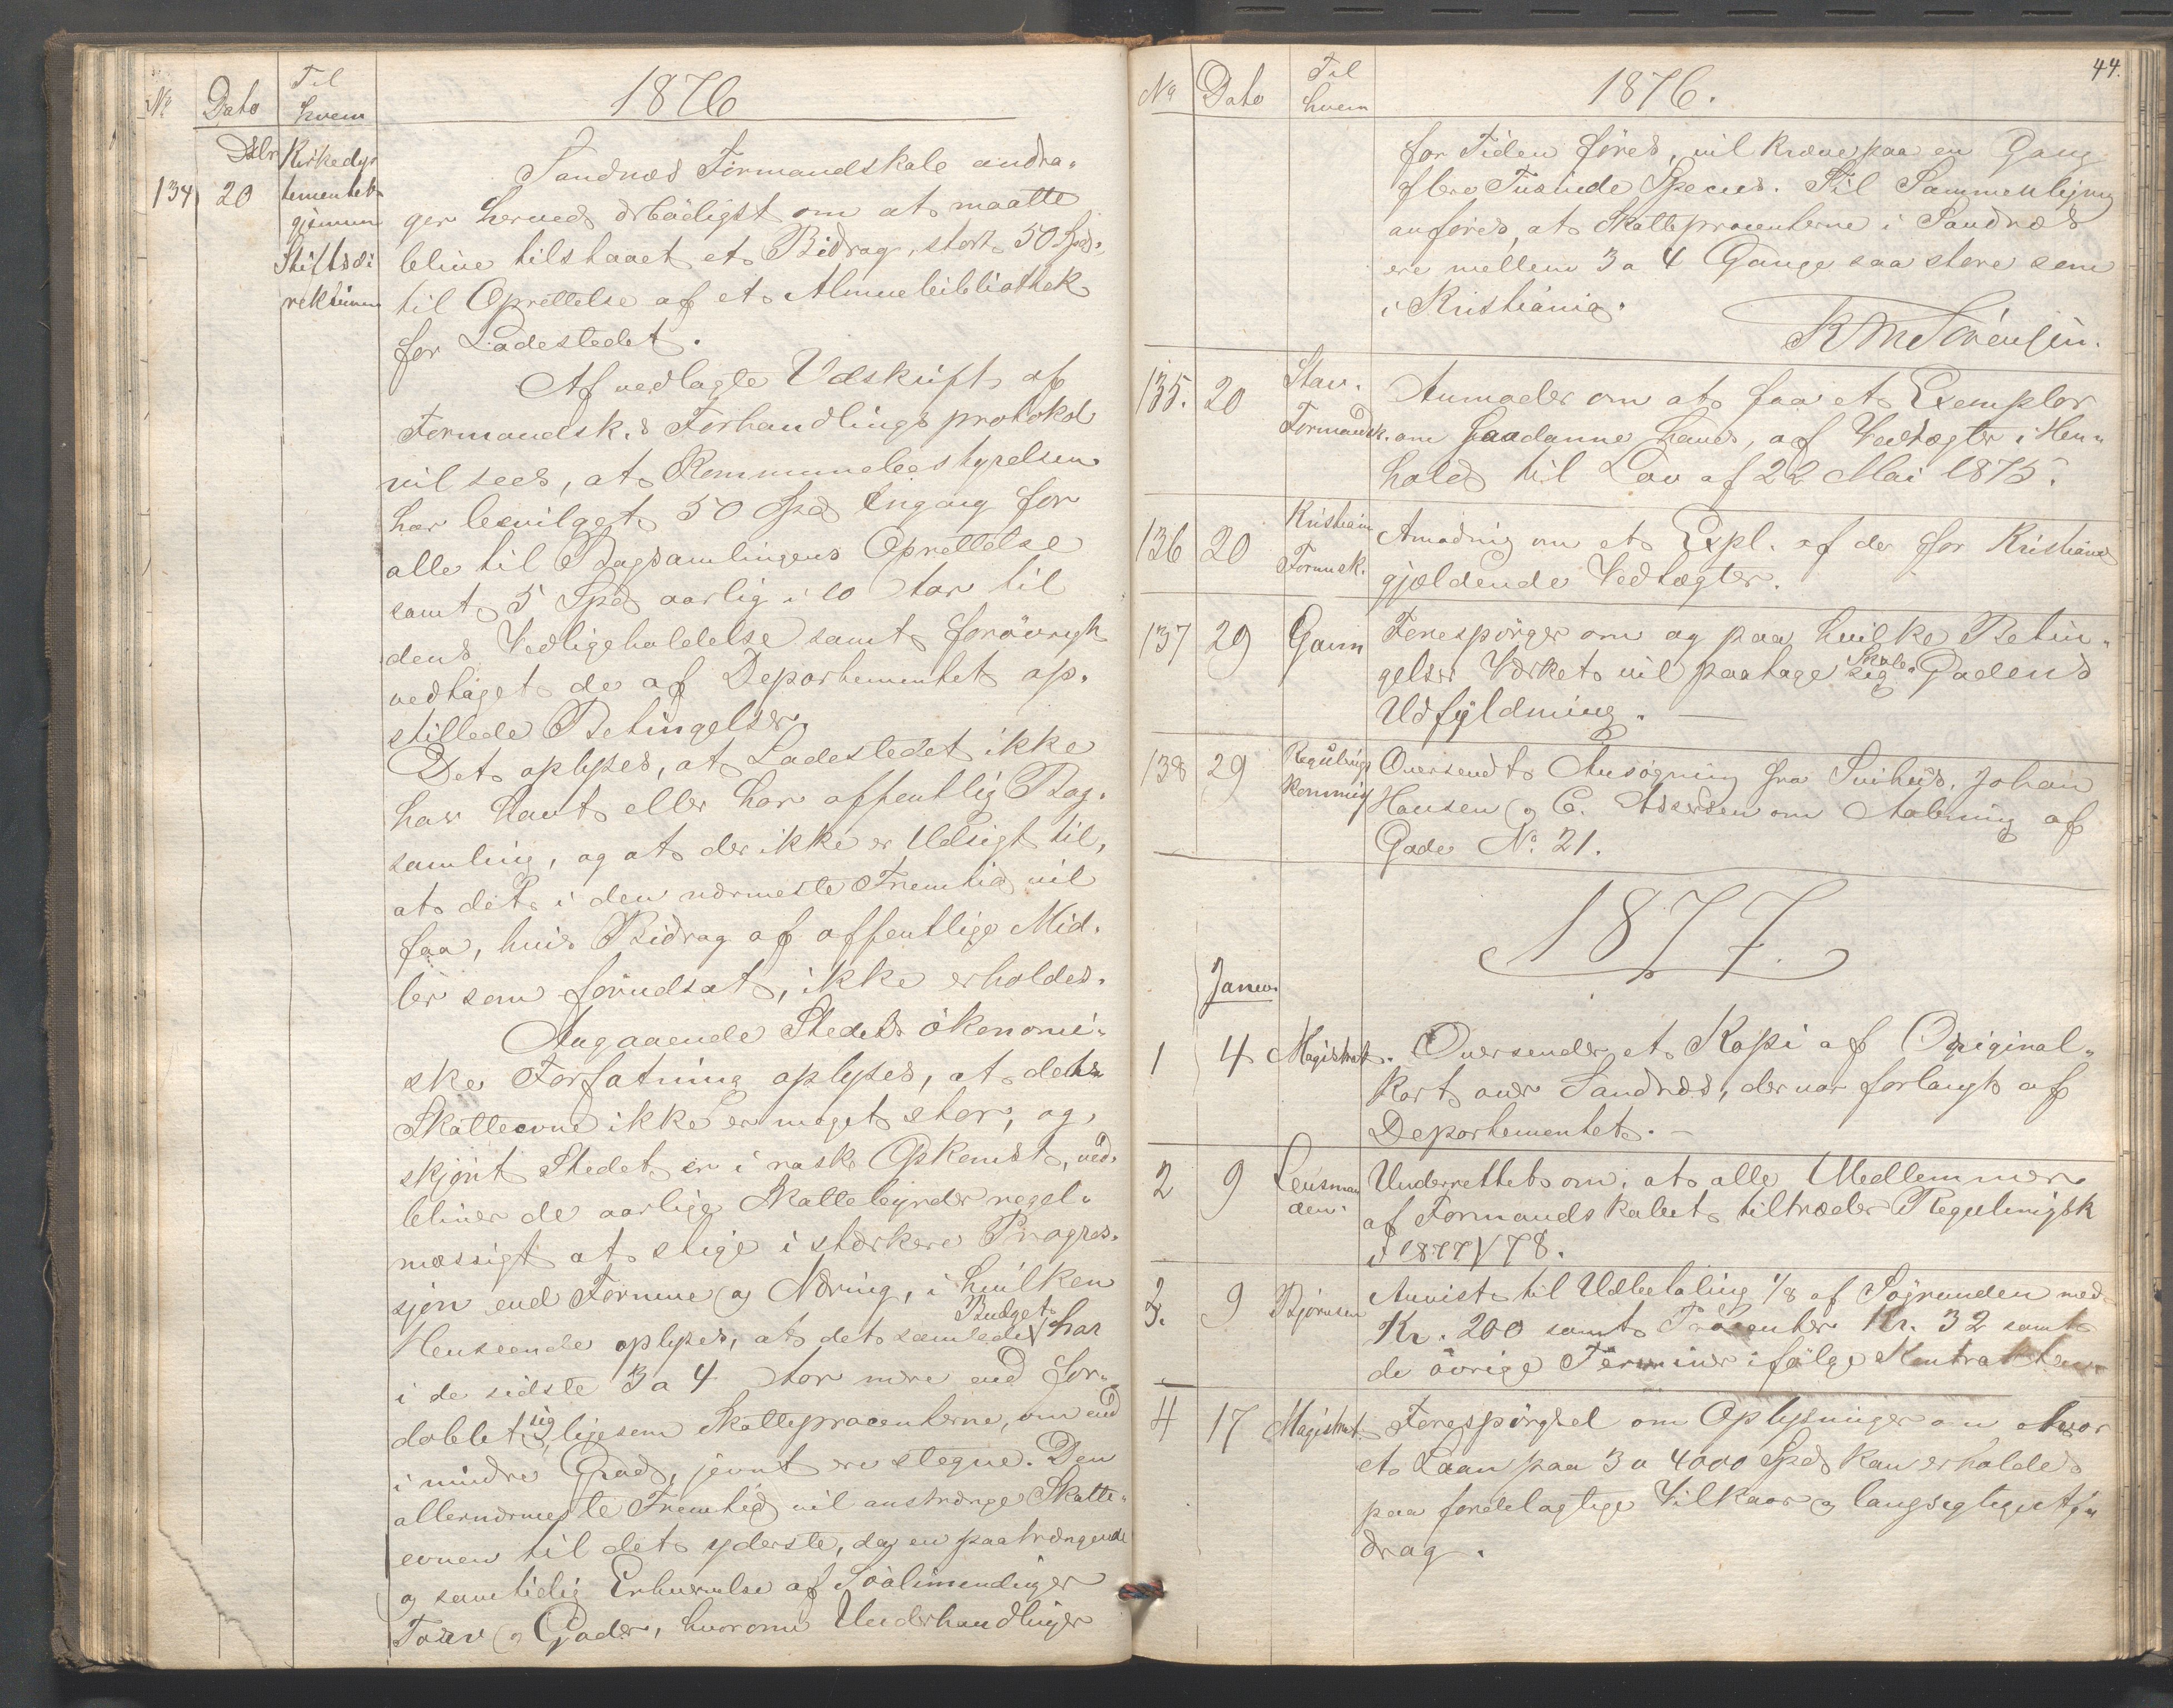 No Dato Til hvem 1876
Dcbr Kirkedepar
134 20 tementet
gjennem
Stiftsdi
rektionen
Sandnæs Formandskab andra-
ger herved ærbødigst om at maatte
blive tilstaaet et Bidrag, stort 50 Spd.
til Oprettelse af et Almuebibliothek
for Ladestedet.
Af vedlagte Udskrift af
Formandsk.s Forhandlingsprotokol
vil sees, at Kommunebestyrelsen
har bevilget 50 Spd Engang for
alle til Bogsamlingens Oprettelse
samt 5 Spd aarlig i 10 Aar til
dens Vedligeholdelse samt forøvrigt
vedtaget de af Departementet op-
stillede Betingelser.
Det oplyses, at Ladestedet ikke
har havt eller har offentlig Bog-
samling, og at der ikke er Udsigt til,
at det i den nærmeste Fremtid vil
faa, hvis Bidrag af offentlige Mid-
ler som forudsat, ikke erholdes.
Angaaende Stedets økonomi-
ske Forfatning oplyses, at dets
Skatteevne ikke er meget stor, og,
skjønt Stedet er i rask Opkomst, ved-
bliver de aarlige Skattebyrder regel-
mæssigt at stige i stærkere Progres-
sjon end Formue og Næring, i hvilken
Henseende oplyses, at det samlede Budget har
i de sidste 3 a 4 Aar mere end for-
doblet sig, ligesom Skatteprocenterne, om end
i mindre Grad, jevnt ere stegne. Den
allernærmeste Fremtid vil anstrænge Skatte-
evnen til det yderste, da en paatrængende
og samtidig Erhvervelse af Søalmendinger
Torv og Gader, hvorom Underhandlinger
44.
No Dato Til hvem 1876.
for Tiden føres, vil kræve paa en Gang
flere Tusinde Species. Til Sammenligning
anføres, at Skatteprocenterne i Sandnæs
ere mellem 3 a 4 Gange saa store som
i Kristiania.
R M Sørensen.
135. 20 Stav. Formandsk. Anmoder om at faa et Exemplar
om saadanne haves, af Vedtægter i Hen-
hold til Lov af 22 Mai 1875.
136 20 Kristian Formsk. Amodnig om et Expl. af de for Kristiania
gjældende Vedtægter.
137 29 Gann Forespørger om og paa hvilke Betin-
gelser Værket vil paatage sig Skole-Gadens
Udfyldning.
138 29 Regulings kommis Oversendt Ansøgning fra Johan
Hansen og C. Asersen om Aabning af
Gade No. 21.
1877
Januar
1 4 Magistrat. Oversender et Kopi af Original-
kart over Sandnæs, der var forlangt af
Departementet.
2 9 Lensman den. Underrettet om, at alle Medlemmer
af Formandskabet tiltræder Regulingsk
i 1877/78.
3. 9 Bjørnsen Anvist til Udbetaling 1/8 af Søgrunden med
Kr. 200 samt Prosenter Kr. 32 samt
de øvrige Terminer ifølge Kontrakten
4 17 Magistrat Forespørgsel om Oplysninger om hvor
et Laan paa 3 a 4000 Spd kan erholdes
paa fordelagtige Vilkaar og langsigtigst Af-
drag.